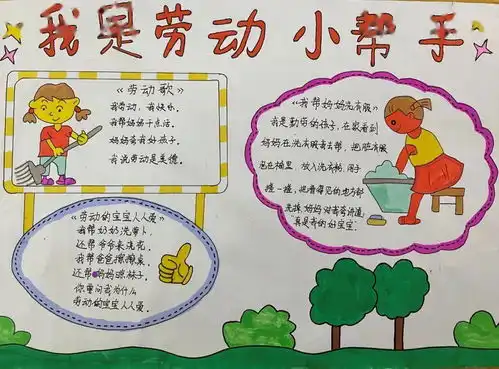 我是劳动小帮手
《劳动歌》
我劳动，我快乐。
我帮妈妈干点活。
妈妈夸我好孩子。
我说劳动是美德。
《劳动的宝宝人人爱》
我帮奶奶洗萝卜，
还帮爷爷来浇花，
我帮爸爸擦擦桌，
还帮妈妈晾袜子。
你要问我为什么
劳动的宝宝人人爱。
《我帮妈妈洗衣服》
我是勤劳的孩子，在家看到
妈妈在洗衣服去去帮，把脏衣服
泡在桶里，放入洗衣粉，用手
搓一搓，把看得见的地方都
洗掉，妈妈对客客讲道，
真是我的好宝宝。